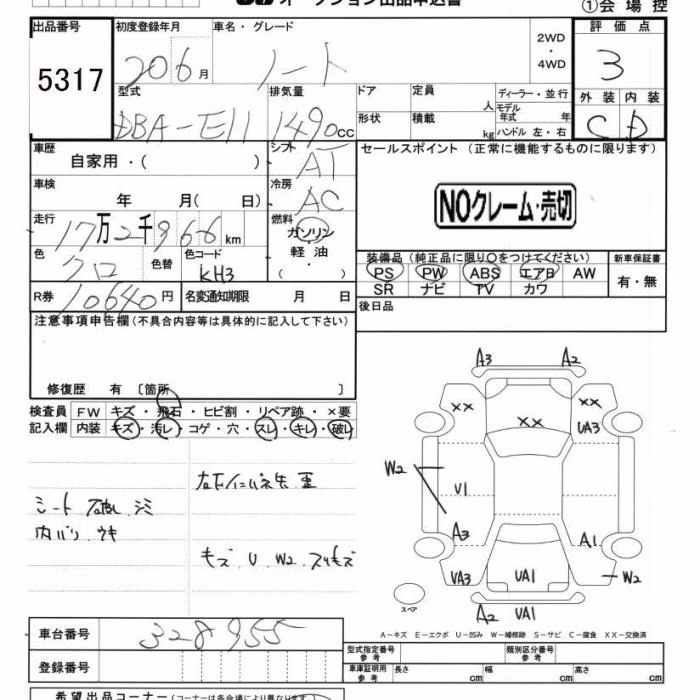 オークション出品申込書 ①会場控
出品番号 初度登録年月 車名・グレード 2WD・4WD 評価点
5317 20 6月 ノート 3
型式 排気量 ドア 定員 人 ディーラー・並行 外装 内装
DBA-E11 1490cc 形状 積載 kg モデル年式 年 ハンドル 左・右 C D
車歴 自家用・( ) シフト AT セールスポイント (正常に機能するものに限ります)
車検 年 月( 日) 冷房 AC
NOクレーム・売切
走行 17万2千966km 燃料 ガソリン・軽油・( )
色 クロ 色替 色コード KH3
装備品 (純正品に限り○をつけてください) 新車保証書
PS PW ABS エアB AW 有・無
SR ナビ TV カワ
R券 10640円 名変通知期限 月 日 後日品
注意事項申告欄(不具合内容等は具体的に記入して下さい)
修復歴 有 〔箇所 〕
検査員 FW キズ・飛石・ヒビ割・リペア跡・×要
記入欄 内装 キズ・汚レ・コゲ・穴・スレ・キレ・破レ
シート 破レ シミ
内バリ ウキ
キズ U W2 スリキズ
A3 A2
XX XX XX
UA3
W2
U1
A3 A1
UA3 UA1 W2
スペア
A2 UA1
A-キズ E-エクボ U-凹み W-補修跡 S-サビ C-腐食 XX-交換済
車台番号 328955
登録番号
型式指定番号 参考 類別区分番号 参考
車庫証明用 参考 長さ cm 幅 cm 高さ cm
希望出品コーナー